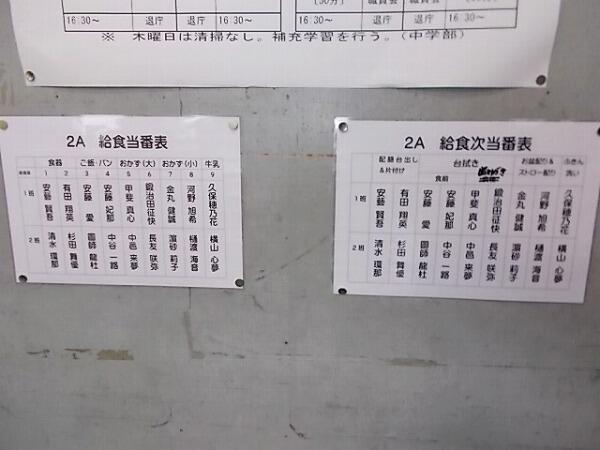 16:30～ 退庁 16:30～
16:30～ 退庁 退庁 16:30～
※ 木曜日は清掃なし。補充学習を行う。(中学部)
2A 給食当番表
食器 ご飯・パン おかず(大) おかず(小) 牛乳
1 2 3 4 5 6 7 8 9
1班 安藝賢吾 有田翔英 安藤愛 安藤妃那 甲斐真心 鍛治田征快 金丸健誠 河野旭希 久保穂乃花
2班 清水環那 杉田舞優 圖師龍杜 中谷一路 中邑来夢 長友咲弥 濵砂莉子 樋渡海音 横山心夢
2A 給食次当番表
配膳台出し&片付け 台拭き お盆配り& ふきん
食前 ストロー配り 洗い
1班 安藝賢吾 有田翔英 安藤愛 安藤妃那 甲斐真心 鍛治田征快 金丸健誠 河野旭希 久保穂乃花
2班 清水環那 杉田舞優 圖師龍杜 中谷一路 中邑来夢 長友咲弥 濵砂莉子 樋渡海音 横山心夢